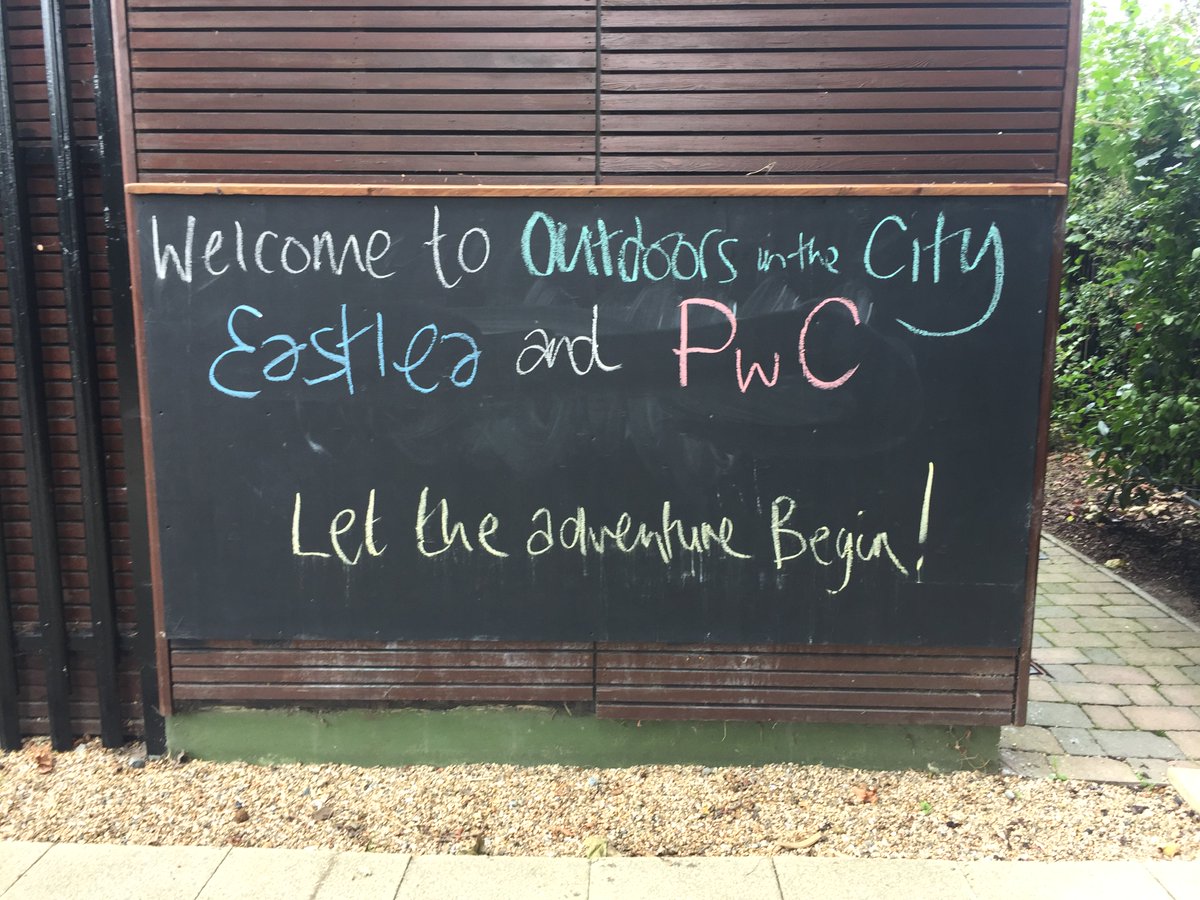 Welcome to Outdoors in the City
Eastlea and PwC
Let the adventure Begin!